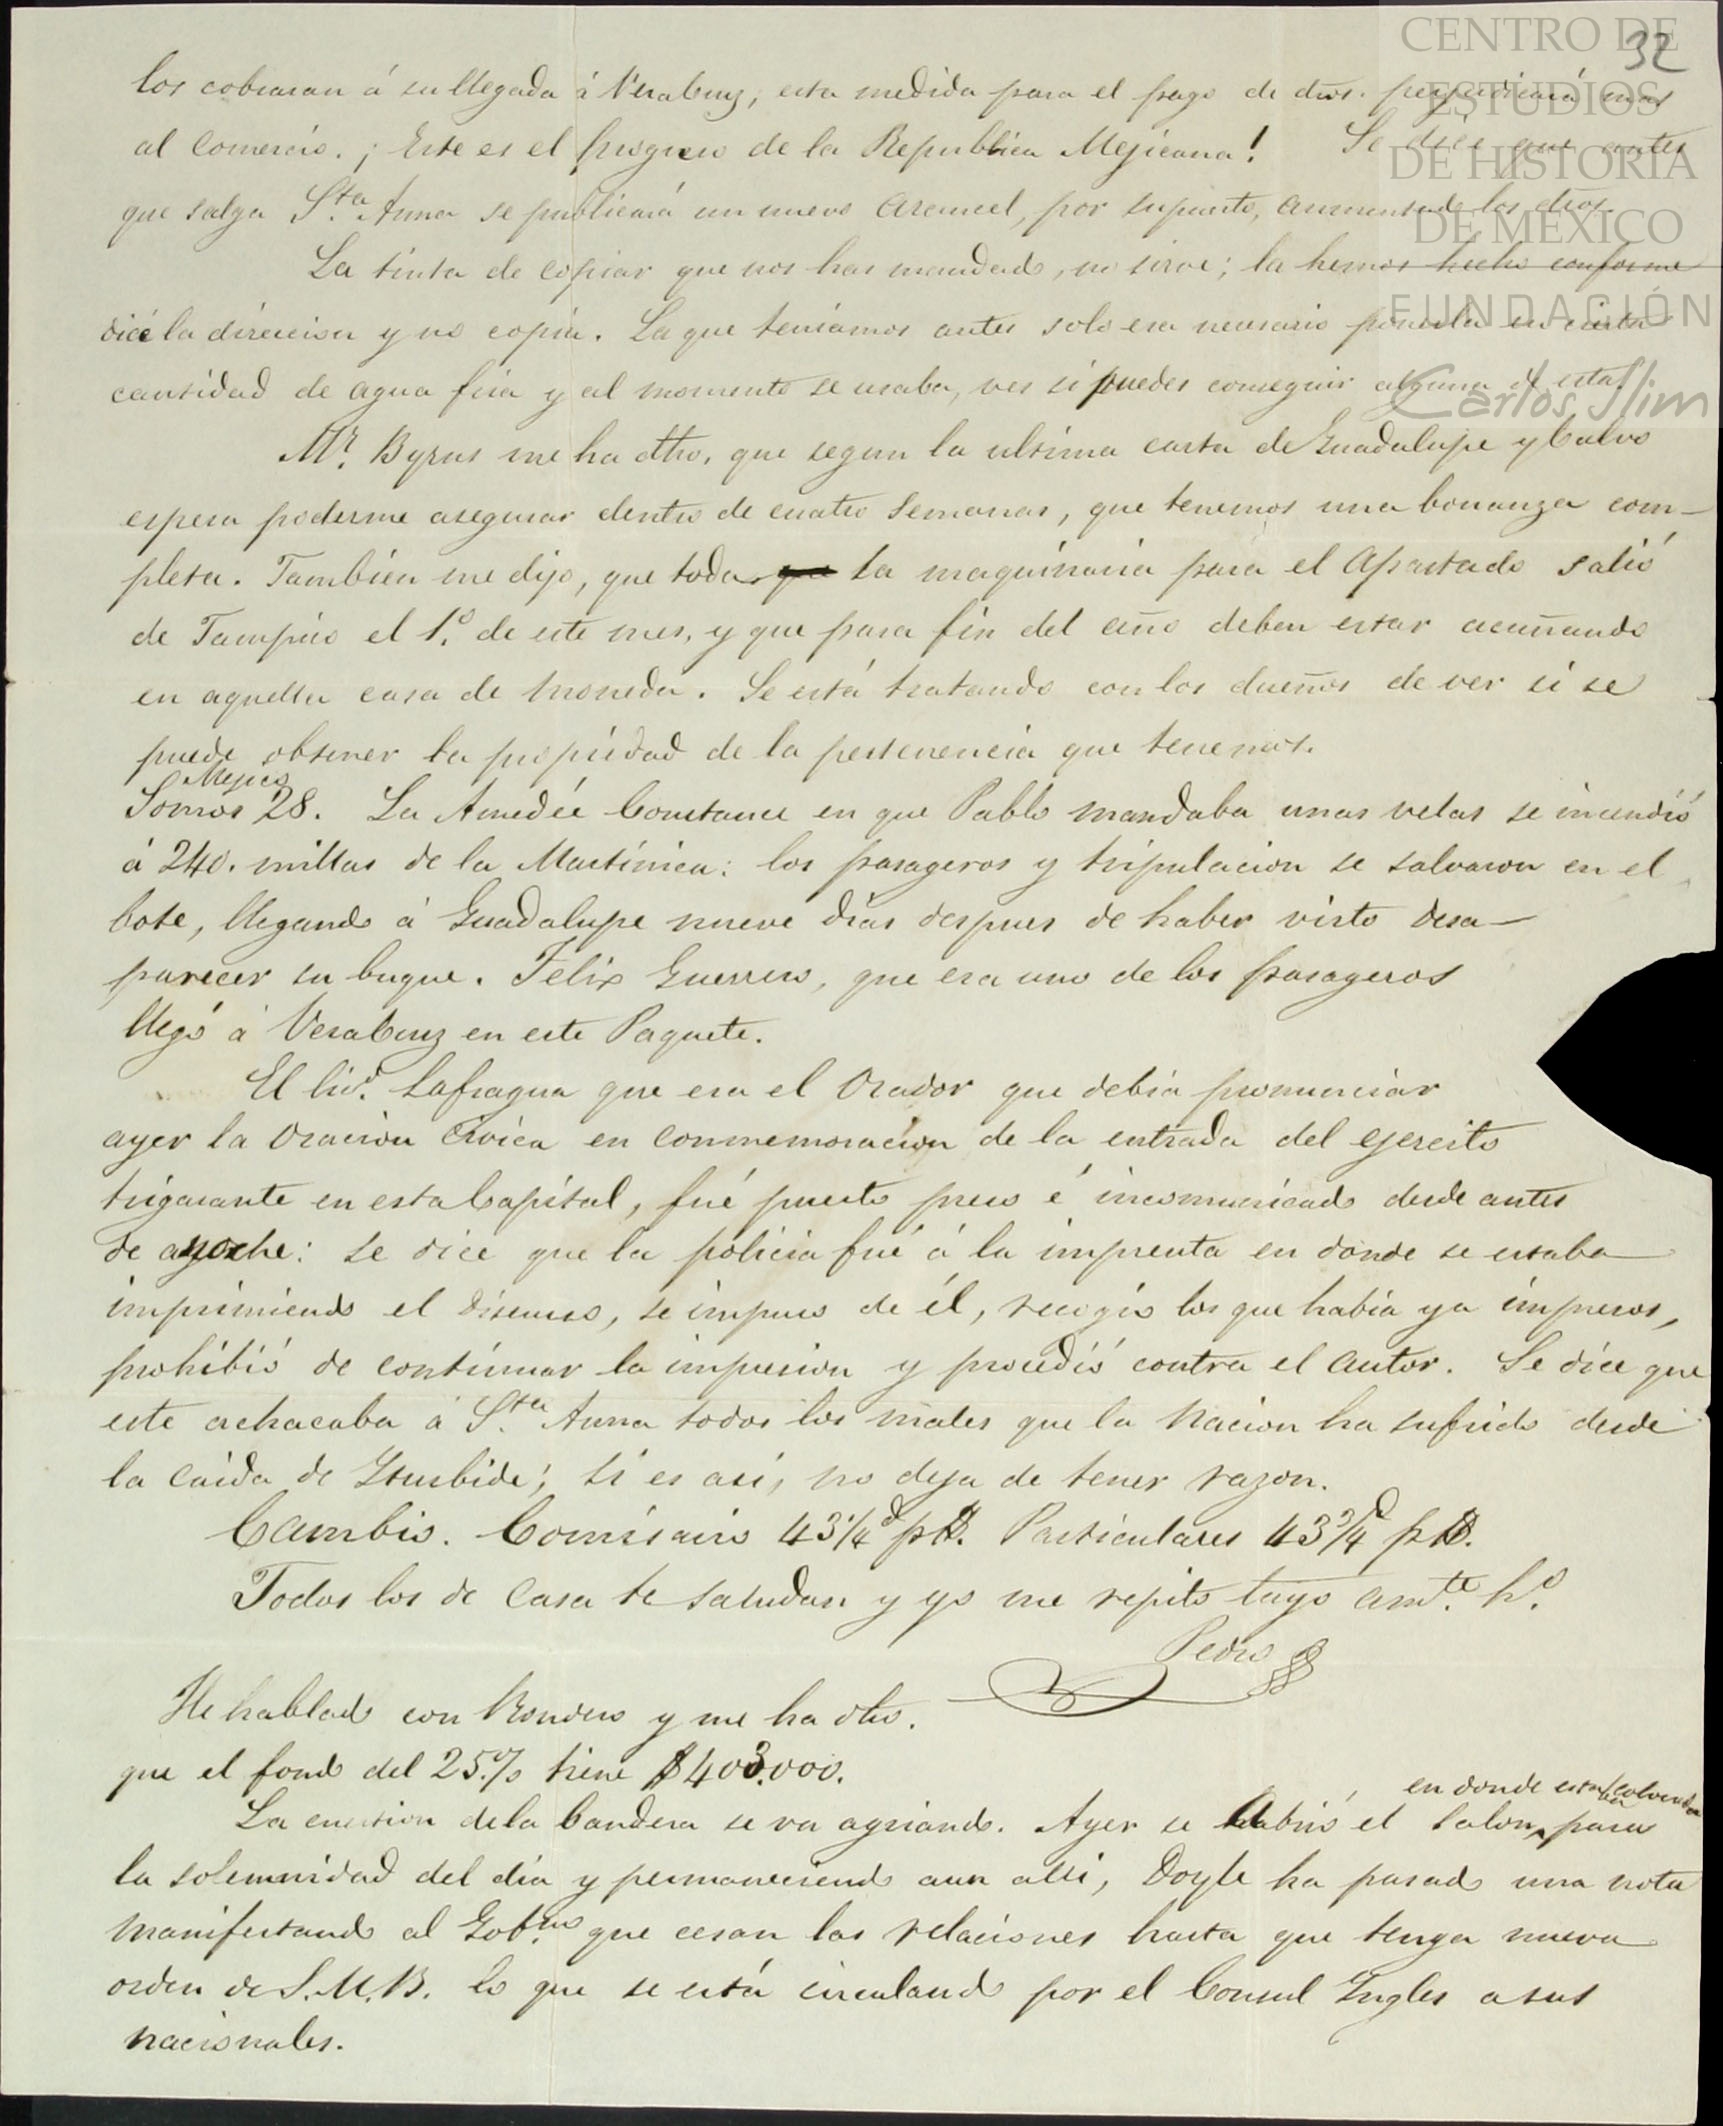 32
CENTRO DE
ESTUDIOS
DE HISTORIA
DE MÉXICO
FUNDACIÓN
Carlos Slim
los cobraran á su llegada á VeraCruz, esta medida para el pago de dros. perjudicará mas
al Comercio. ¡Este es el progreso de la Republica Mejicana! Se dice que antes
que salga Sta. Anna se publicará un nuevo Arancel, por supuesto, aumentando los dros.
La tinta de copiar que nos has mandado, no sirve; la hemos hecho conforme
dice la direccion y no copia. La que teniamos antes solo era necesario ponerla en cierta
cantidad de agua fria y al momento se usaba, ves si puedes conseguir alguna de esta.
Mr. Byrus me ha dho, que segun la ultima carta de Guadalupe y Calvo
espera poderme asegurar dentro de cuatro Semanas, que tenemos una bonanza com-
pleta. Tambien me dijo, que toda que la maquinaria para el Apartado salió
de Tampico el 1.º de este mes, y que para fin del año deben estar acuñando
en aquella casa de moneda. Se está tratando con los dueños de ver si se
puede obtener la propiedad de la pertenencia que tenemos.
Mejico
Somos 28. La Amedée Constance en que Pablo mandaba unas velas se incendió
á 240. millas de la Martinica: los pasageros y tripulacion se salvaron en el
bote, llegando á Guadalupe nueve dias despues de haber visto desa-
parecer su buque. Felix Guerrero, que era uno de los pasageros
llegó á VeraCruz en este Paquete.
El Licd. Lafragua que era el Orador que debia pronunciar
ayer la Oracion Civica en conmemoracion de la entrada del ejercito
trigarante en esta Capital, fué puesto preso é incomunicado desde antes
de anoche: se dice que la policia fué á la imprenta en donde se estaba
imprimiendo el discurso, se impuso de él, recogió los que habia ya impresos,
prohibió de continuar la impresion y procedió contra el autor. Se dice que
este achacaba á Sta. Anna todos los males que la Nacion ha sufrido desde
la caida de Yturbide; si es asi, no deja de tener razon.
Cambio. Comisario 43 1/4 d p$. Particulares 43 3/4 d p$.
Todos los de Casa te saludan y yo me repito tuyo amte. ho.
Pedro
He hablado con Rondero y me ha dho.
que el fondo del 25.% tiene $403.000.
en donde estaba colocada
La cuestion de la bandera se va agriando. Ayer se abrió el salon para
la solemnidad del dia y permaneciendo aun alli, Doyle ha pasado una nota
manifestando al Gobno. que cesan las relaciones hasta que tenga nueva
orden de S.M.B. lo que se está circulando por el Consul Ingles a sus
nacionales.